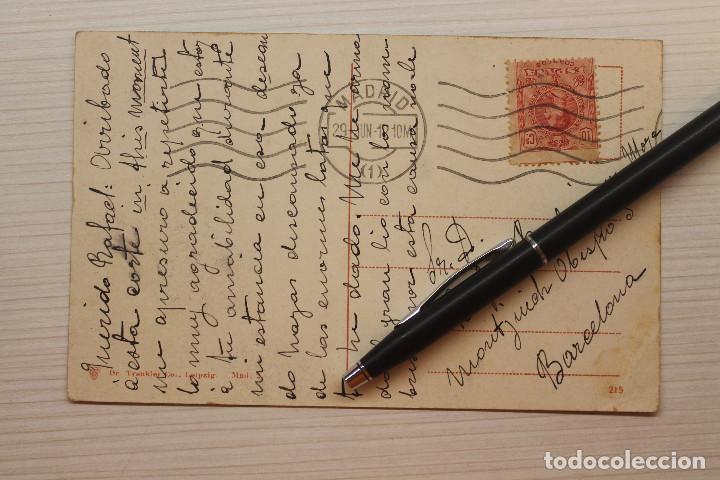 Querido Rafael: Arribado
a esta corte in this moment
me apresuro a repetirte
lo muy agradecido que estoy
a tu amabilidad durante
mi estancia en esa, desean
do hayas descansado ya
de las enormes latas que
te he dado. Me he
gran lio con la
por esta causa no le
MADRID
29 JUN 10M
(1)
Sr. D.
Obispo 3
Barcelona
Dr. Trenkler Co., Leipzig. Mad.
215
todocoleccion.net